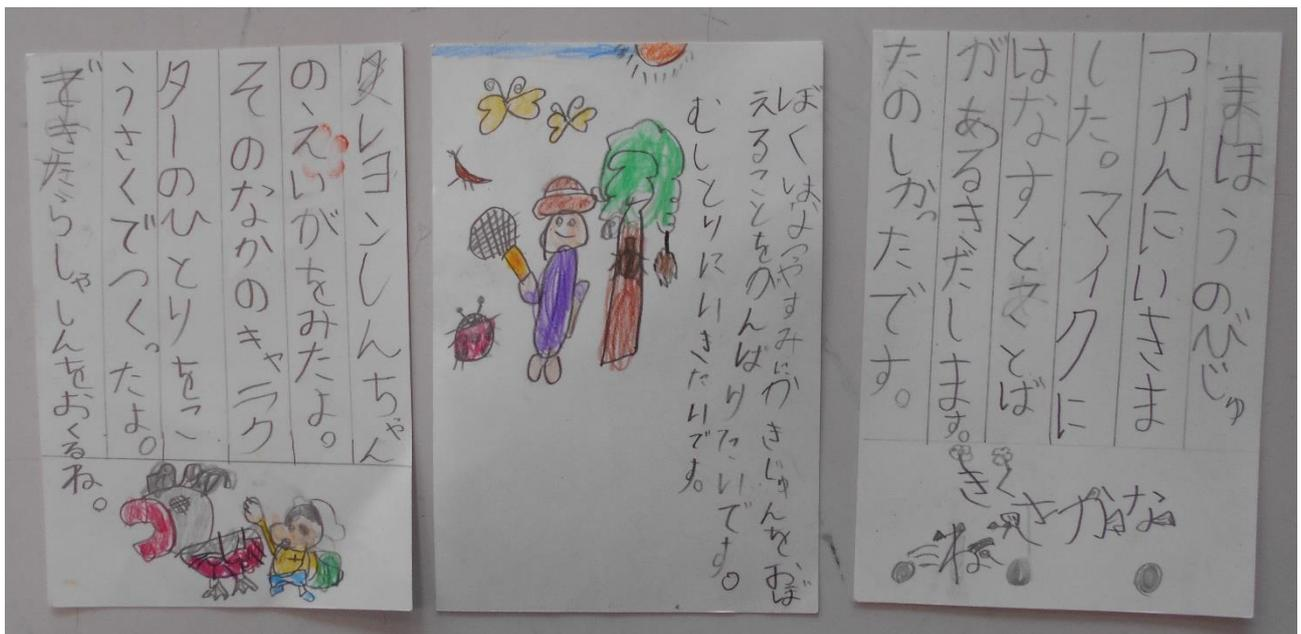 まほうのびじゅ
つかんにいきま
した。マイクに
はなすとことば
があるきだします。
たのしかったです。
さかな
きく
ぼくはなつやすみにかきじゅんをおぼ
えることをがんばりたいです。
むしとりにいきたいです。
クレヨンしんちゃん
の、えいがをみたよ。
そのなかのキャラク
ターのひとりをこ
うさくでつくったよ。
できたらしゃしんをおくるね。